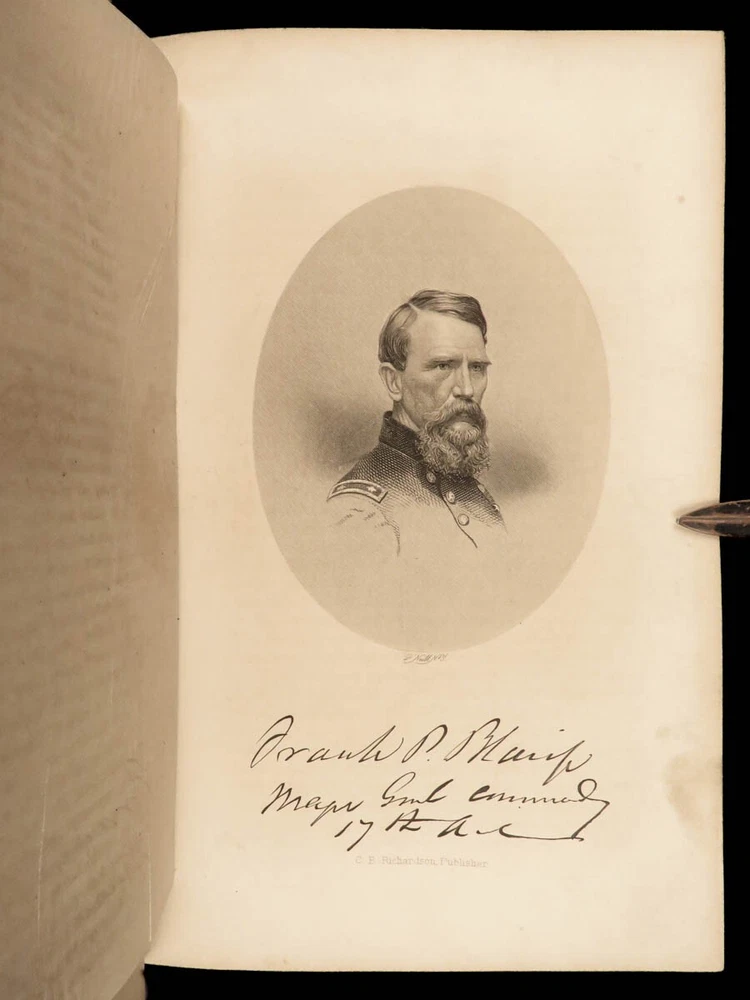 Frank P. Blair Jr
Major Genl commandg
17th A. C.
C. B. Richardson, Publisher.